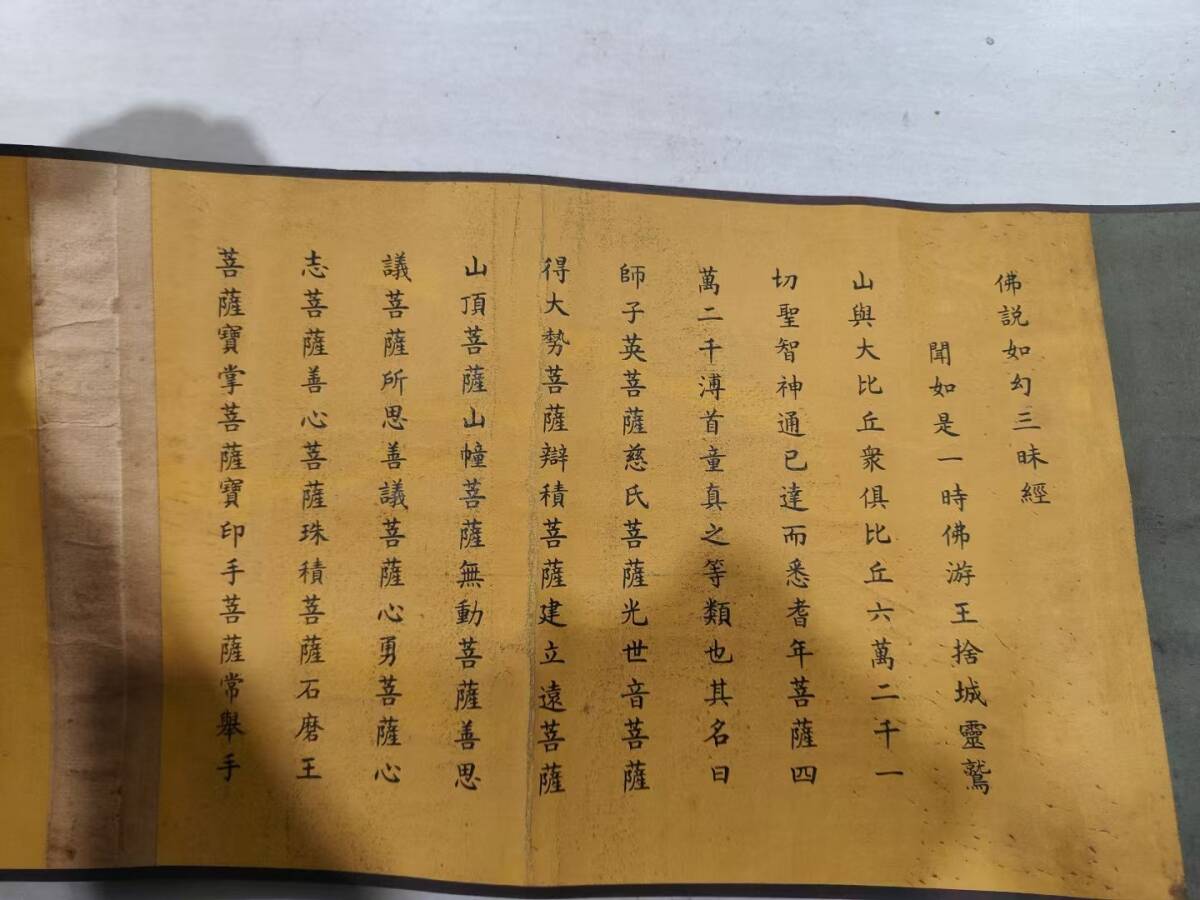 佛説如幻三昧經
聞如是一時佛游王捨城靈鷲
山與大比丘衆俱比丘六萬二千一
切聖智神通已達而悉耆年菩薩四
萬二千溥首童真之等類也其名曰
師子英菩薩慈氏菩薩光世音菩薩
得大勢菩薩辯積菩薩建立遠菩薩
山頂菩薩山幢菩薩無動菩薩善思
議菩薩所思善議菩薩心勇菩薩心
志菩薩善心菩薩珠積菩薩石磨王
菩薩寶掌菩薩寶印手菩薩常舉手